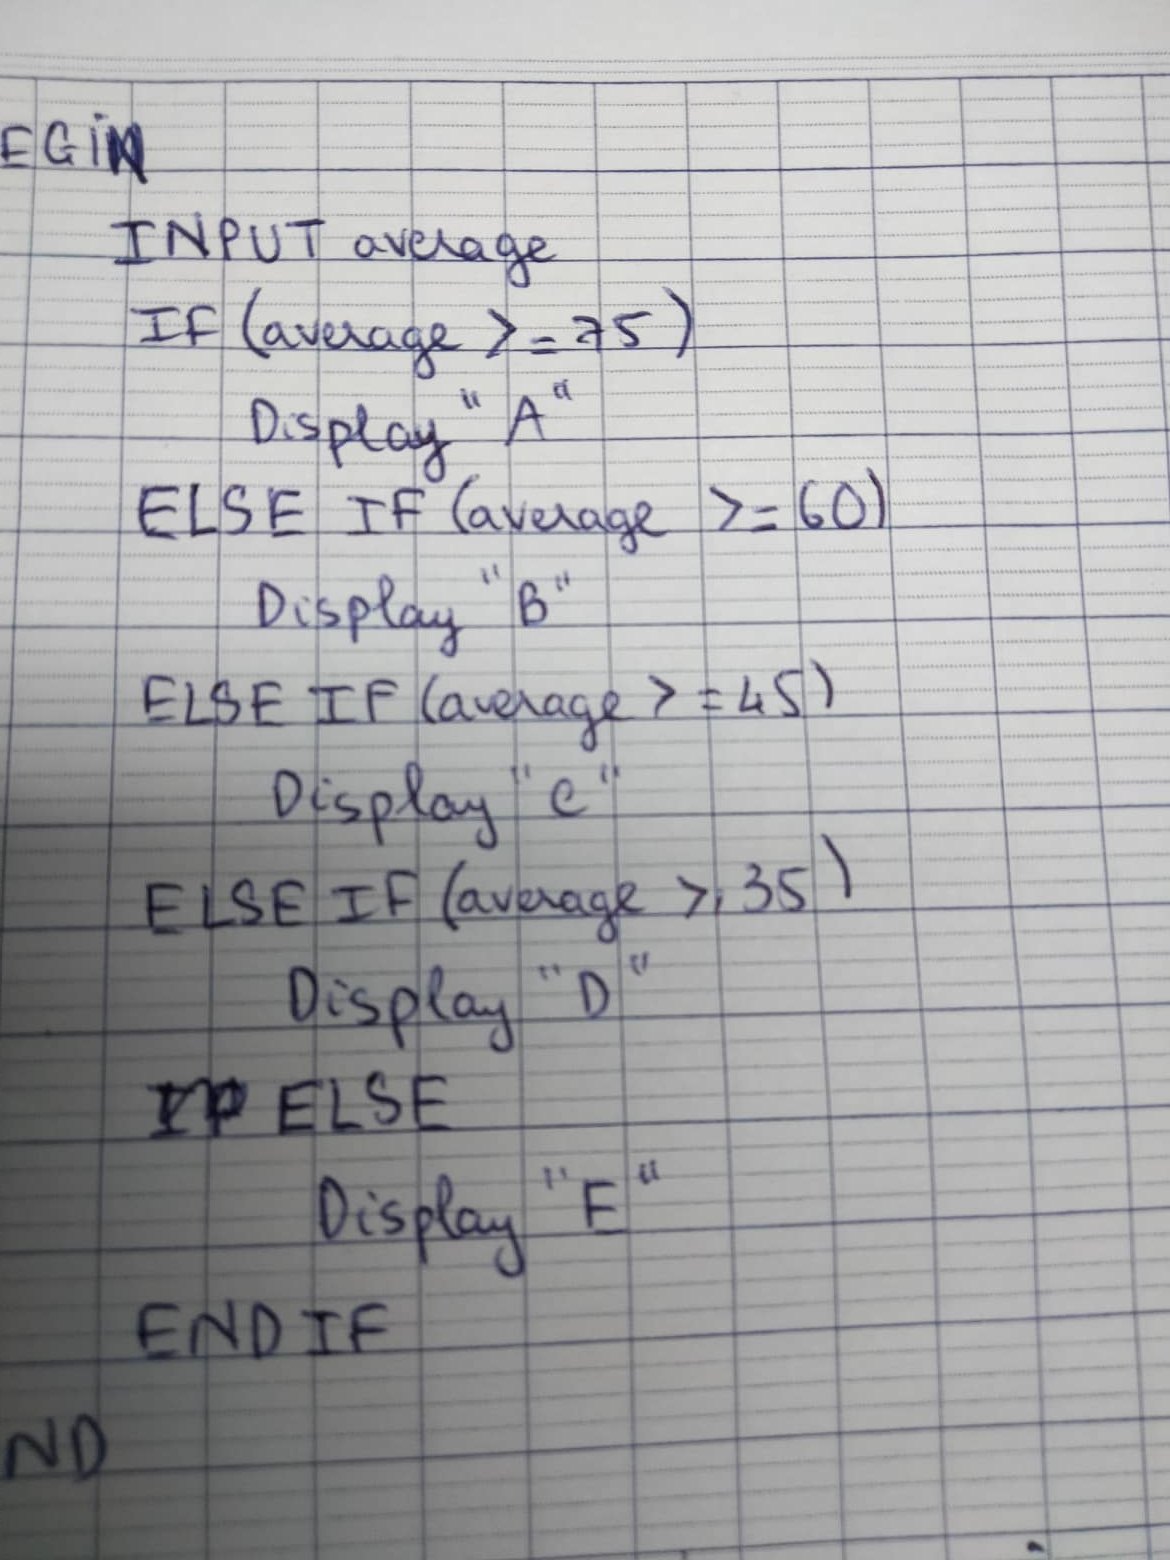 EGIN
INPUT average
IF (average >= 75)
Display "A"
ELSE IF (average >= 60)
Display "B"
ELSE IF (average >= 45)
Display "C"
ELSE IF (average >, 35)
Display "D"
ELSE
Display "E"
END IF
ND